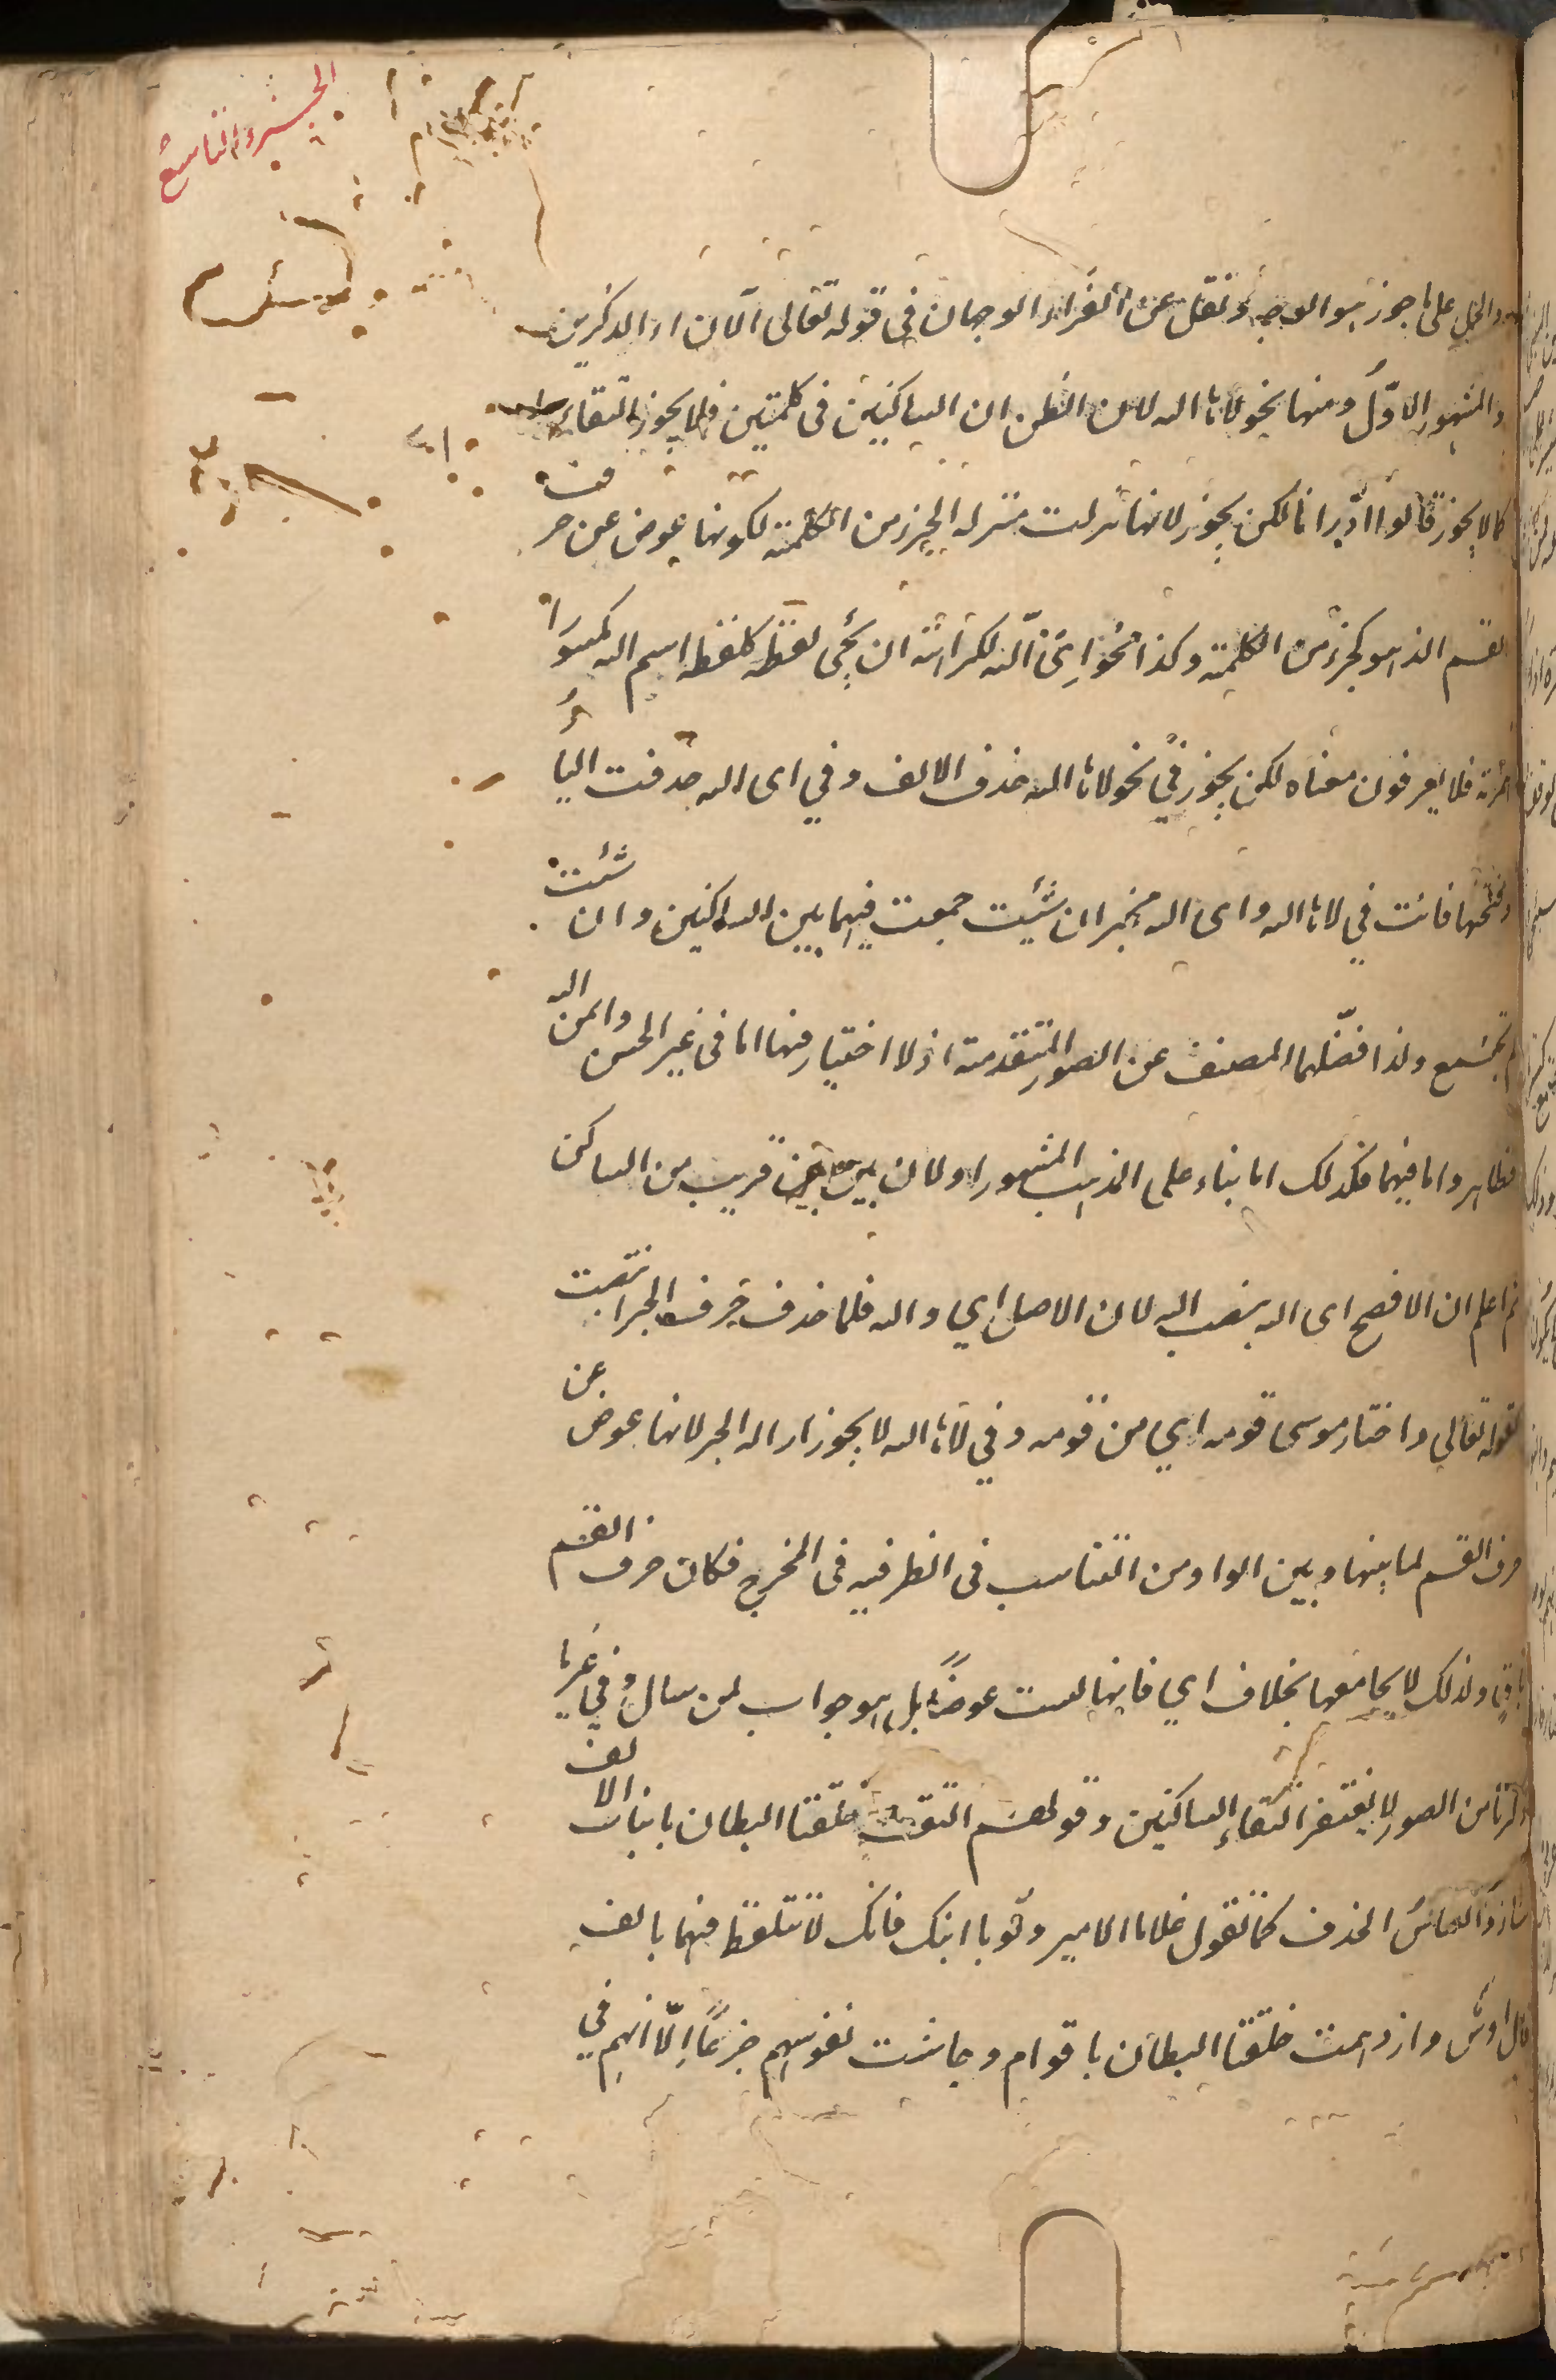 الجزء التاسع
والحمل على ما جوز هو الوجه ونقل عن القراء الوجهان في قوله تعالى آلآن اء الذكرين
والمشهور الاول ومنها نحو لاها الله لان الظن ان الساكنين في كلمتين فلا يجوز التقاء
كما لا يجوز قالوا ادّارانا لكن يجوز لانها نزلت منزلة الجزء من الكلمة لكونها عوض عن حرف
القسم الذي هو كجزء من الكلمة وكذا نحو اي الله لكراهة ان يجيء لفظه كلفظ اسم الله مكسورا
همزته فلا يعرفون معناه لكن يجوز في نحو لاها الله حذف الالف وفي اى الله حذفت الياء
وفتحها فانت في لاها الله واى الله مخير ان شئت جمعت فيهما بين الساكنين وان شئت
لم تجمع ولذا فصّلهما المصنف عن الصور المتقدمة اذ لا اختيار فيها اما في غير الحسن وايمن الله
فظاهر واما فيهما فكذلك اما بناء على المذهب المشهور او لان بين بين قريب من الساكن
ثم اعلم ان الافصح اى الله بنصب الله لان الاصل اي والله فلما حذف حرف الجر انتصب
كقوله تعالى واختار موسى قومه اي من قومه وفي لاها الله لا يجوز الا الجر لانها عوض عن
حرف القسم لما بينها وبين الواو من التناسب في الطرفية في المخرج فكان حرف القسم
باقٍ ولذلك لا يجامعها بخلاف اي فانها ليست عوضًا بل هو جواب لمن سال وفي غير ما
ذكرنا من الصور لا يغتفر التقاء الساكنين وقولهم التقت حلقتا البطان باثبات الالف
شاذ والقياس الحذف كما تقول غلاما الامير وثوبا ابنك فانك لا تتلفظ فيهما بالف
قال اوس وازدحمت حلقتا البطان باقوام وجاشت نفوسهم جزعًا الّا انهم في